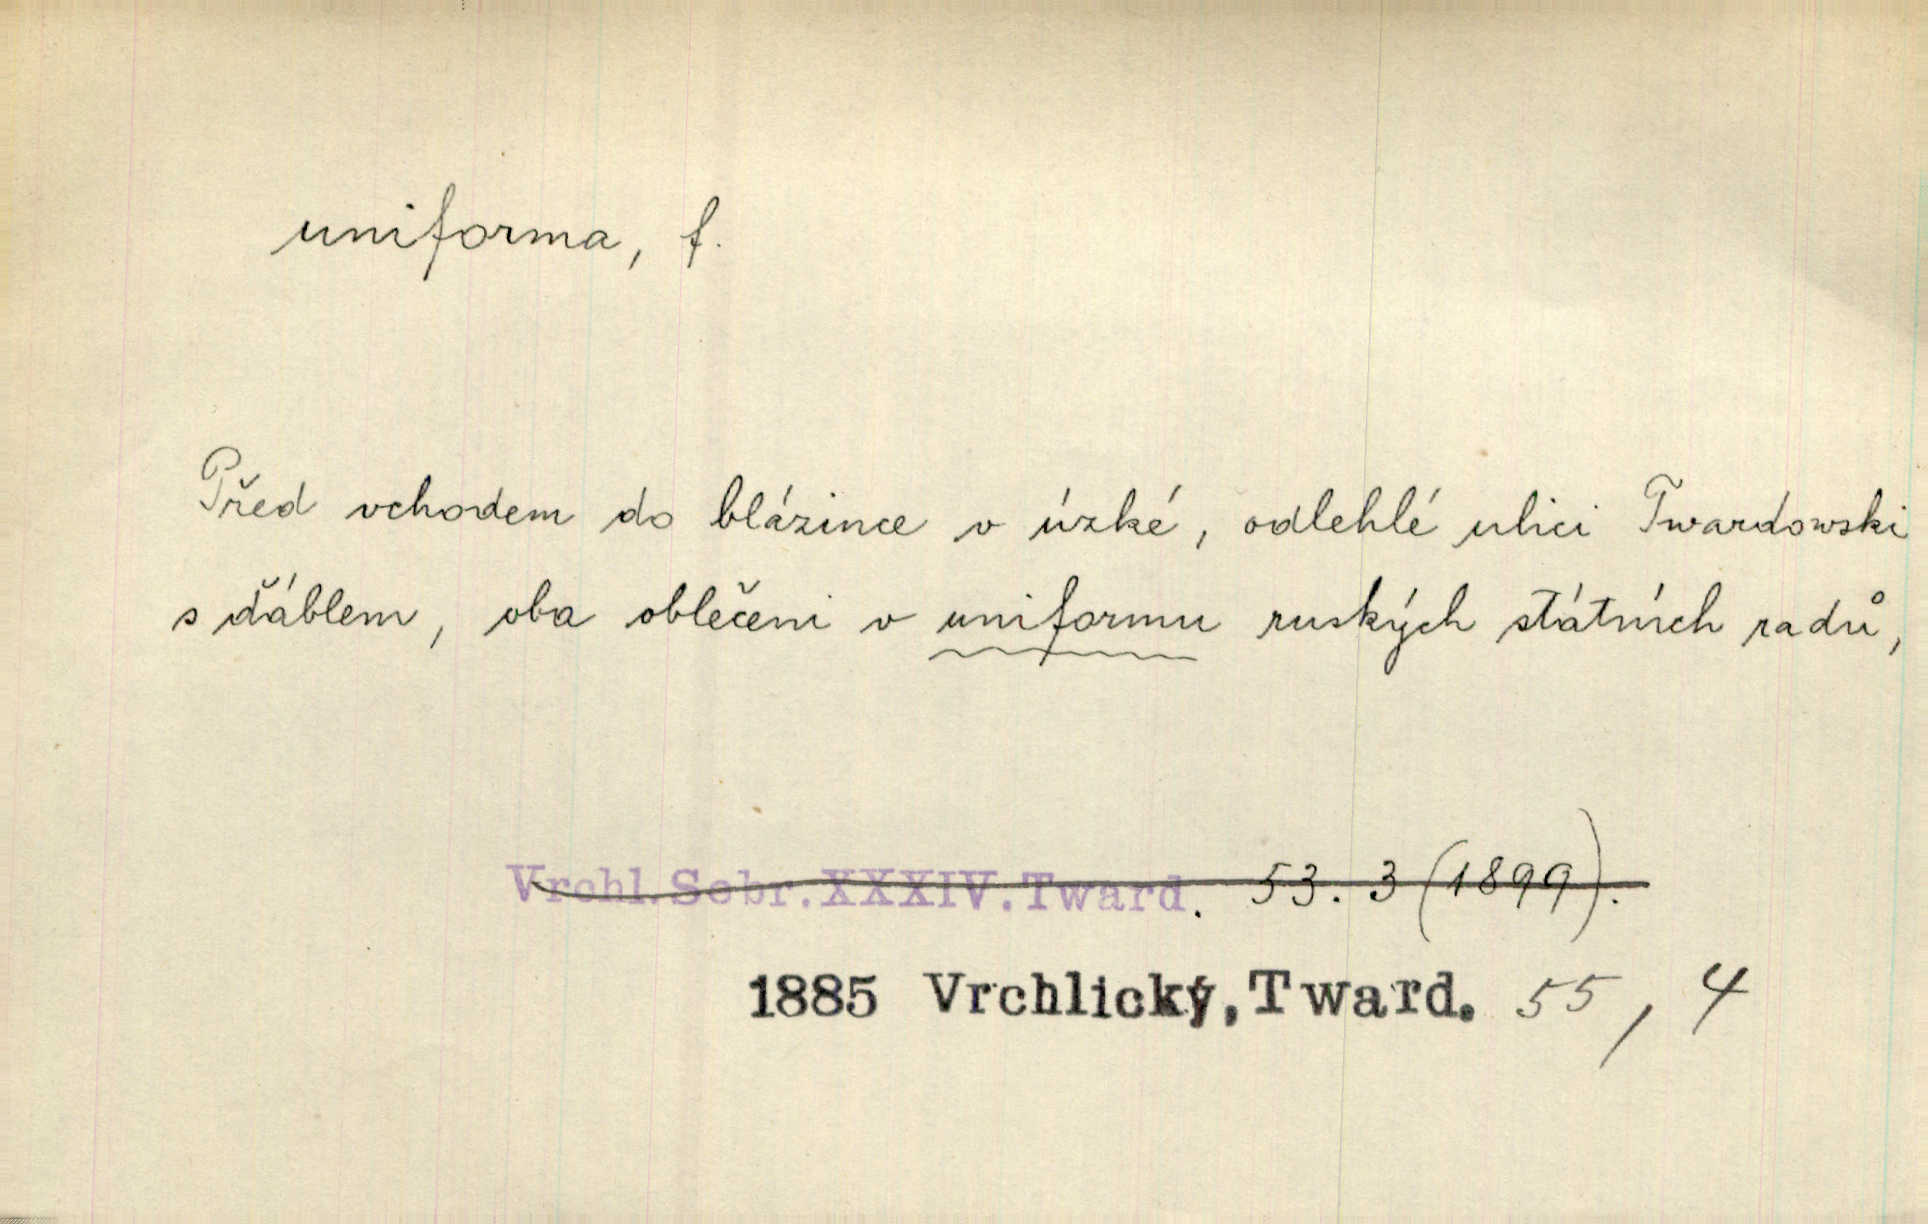 uniforma, f.
Před vchodem do blázince v úzké, odlehlé ulici Twardowski
s ďáblem, oba oblečeni v uniformu ruských státních radů,
Vrchl. Sebr. XXXIV. Tward. 53. 3 (1899).
1885 Vrchlický, Tward. 55, 4